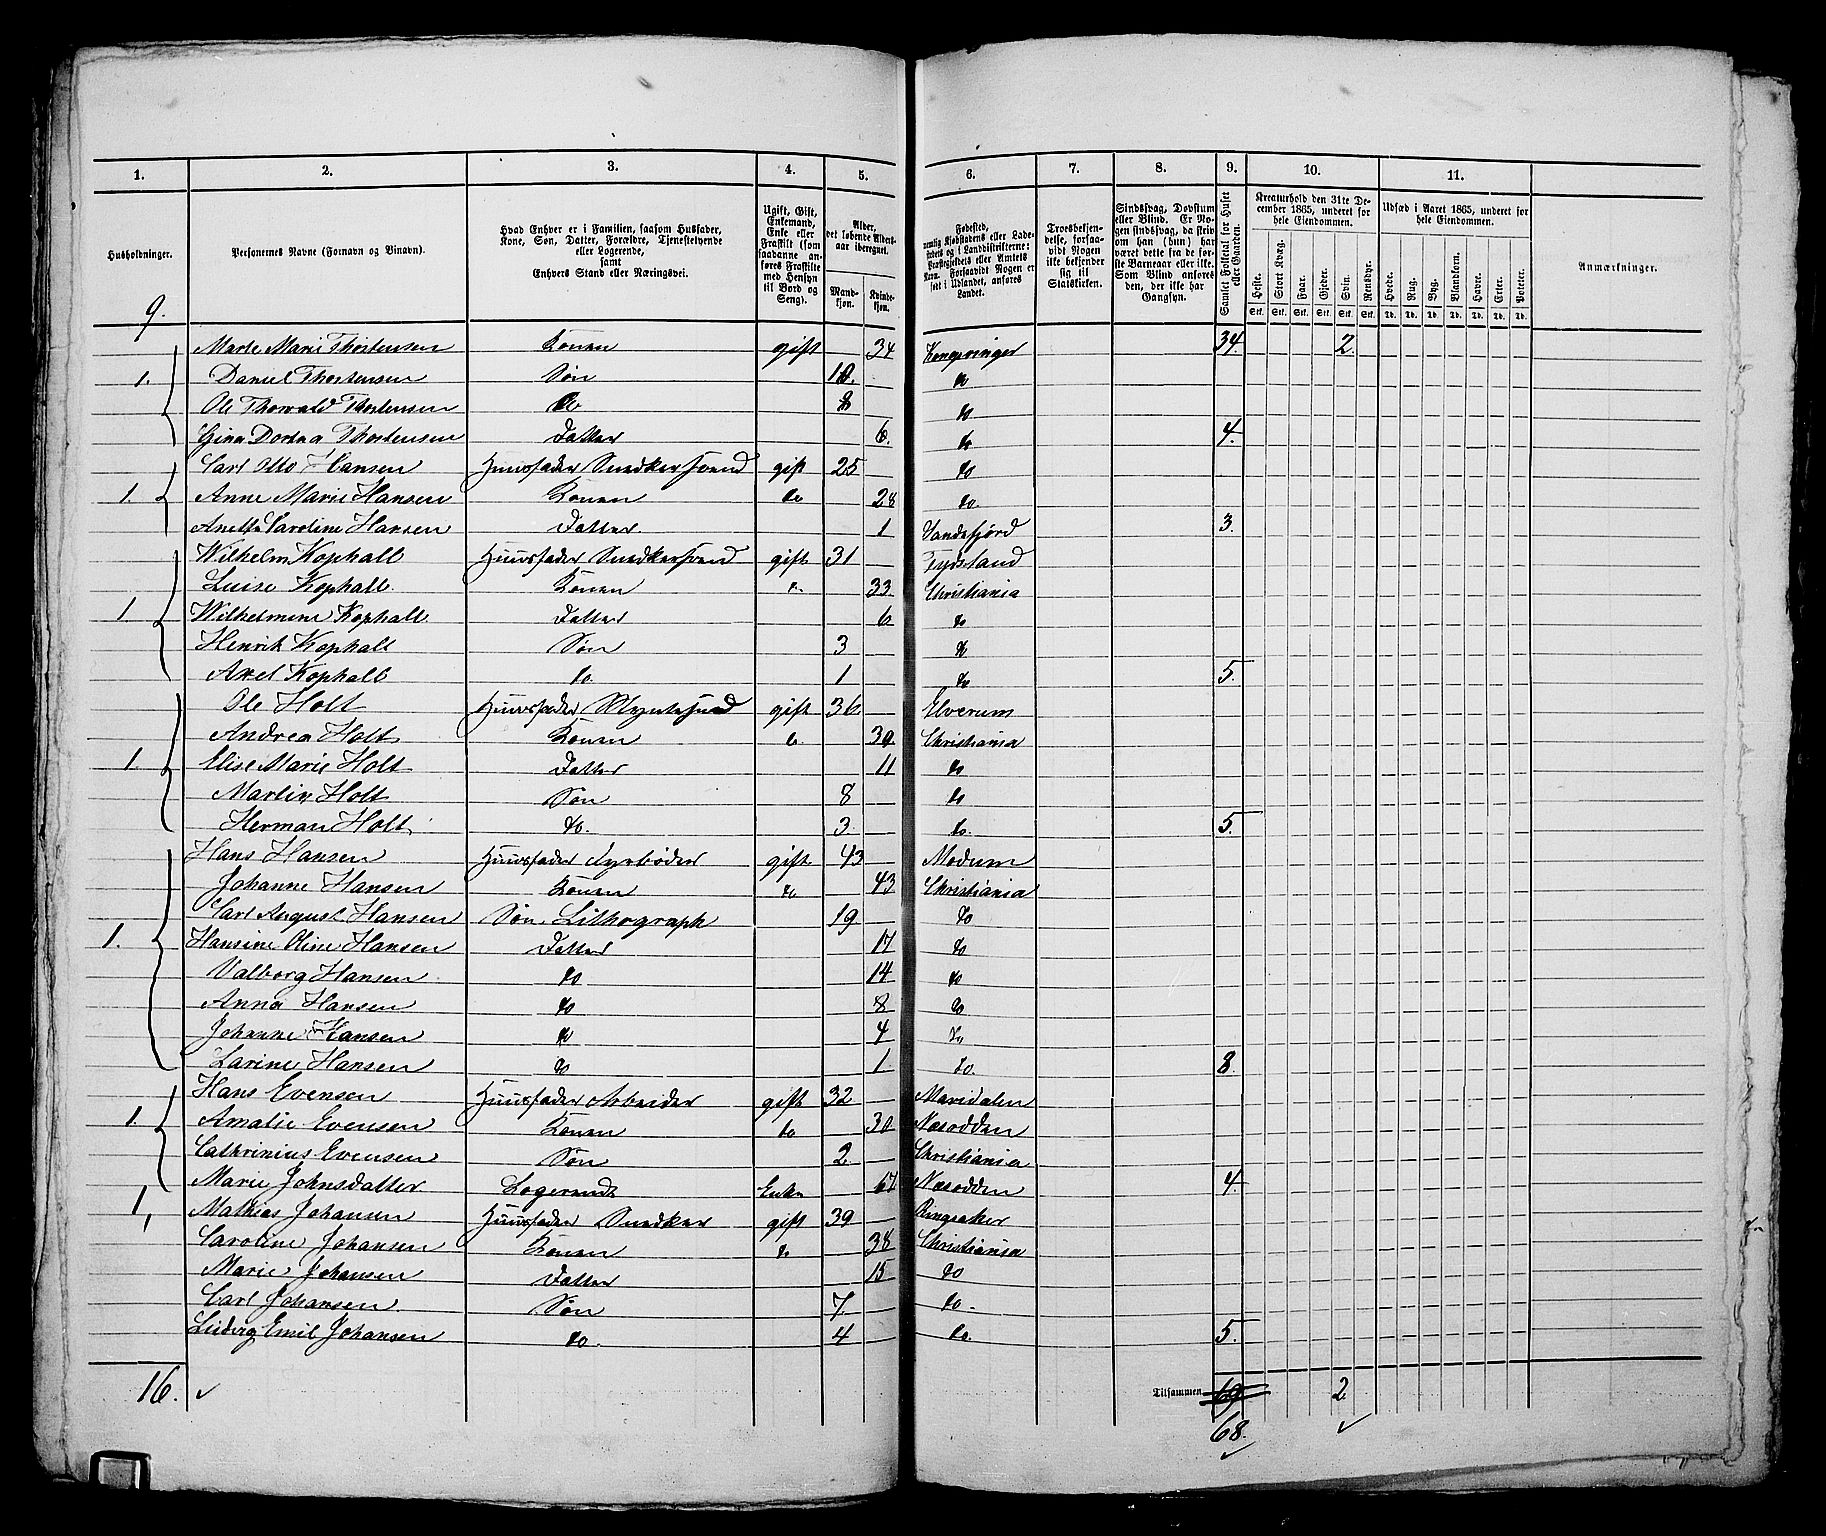 1. 2. 3. 4. 5. 6. 7. 8. 9. 10. 11.
Husholdninger. Personernes Navne (Fornavn og Binavn). Hvad Enhver er i Familien, saasom Husfader, Kone, Søn, Datter, Forældre, Tjenestetyende eller Logerende, samt Enhvers Stand eller Næringsvei. Ugift, Gift, Enkemand, Enke eller Fraskilt (som saadanne anføres Fraskilte med Hensyn til Bord og Seng). Alder, det løbende Aldersaar iberegnet. Mandkjøn. Kvindekjøn. Fødested, nemlig Kjøbstadens eller Ladestedets og i Landdistrikterne: Præstegjeldets eller Amtets Navn. Forsaavidt Nogen er født i Udlandet, anføres Landet. Troesbekjendelse, forsaavidt Nogen ikke bekjender sig til Statskirken. Sindssvag, Døvstum eller Blind. Er Nogen sindssvag, da skrives om han (hun) har været dette fra de første Barneaar eller ikke. Som Blind anføres den, der ikke har Gangsyn. Samlet Folketal for Huset eller Gaarden. Kreaturhold den 31te December 1865, underet for hele Eiendommen. Udsæd i Aaret 1865, underet for hele Eiendommen. Anmærkninger.
Heste. Stort Kvæg. Faar. Gjeder. Svin. Rensdyr. Hvede. Rug. Byg. Blandkorn. Havre. Erter. Poteter.
Stk. Stk. Stk. Stk. Stk. Stk. Td. Td. Td. Td. Td. Td. Td.
9.
Marte Marie Thostensen Konen gift 34 Kongsvinger 34. 2.
1. Daniel Thostensen Søn 10. do
Ole Thorvald Thostensen do 8 do
Gina Dortea Thostensen Datter 6. do 4.
Carl Otto Hansen Huusfader Snedkersvend gift 25 do
1. Anne Marie Hansen Konen do 28 do
Anette Caroline Hansen Datter 1 Sandefjord 3.
Wilhelm Kophalt Huusfader Snedkersvend gift 31 Tydskland
Luise Kophalt. Konen do 33 Christiania
1 Wilhelmine Kophalt Datter 6 do
Henrik Kophalt Søn 3 do
Axel Kophalt do. 1 do 5.
Ole Holt Huusfader gift 36 Elverum
Andrea Holt Konen do 30 Christiania
1. Elise Marie Holt Datter 11 do
Martin Holt Søn 8 do
Herman Holt do. 3. do. 5.
Hans Hansen Huusfader Fyrbøder gift 43 Modum
Johanne Hansen Konen do 43 Christiania
Carl August Hansen Søn, Lithograph 19 do
1. Hansine Oline Hansen Datter 17 do
Valborg Hansen do 14 do
Anna Hansen do 8 do
Johanne Hansen do 4 do
Larine Hansen do 1 do. 8.
Hans Evensen Huusfader Arbeider gift 32 Maridalen
1. Amalie Evensen Konen do 30 Næsodden
Cathrinius Evensen Søn 2 Christiania
Marie Johnsdatter Logerende Enke 67 Næsodden 4.
1, Mathias Johansen Huusfader Snedker gift 39 Ringsaker
Caroline Johansen Konen do 38 Christiania
Marie Johansen Datter 15 do
Carl Johansen Søn 7 do.
Ludvig Emil Johansen do. 4 do. 5.
16. Tilsammen 69 2
68.